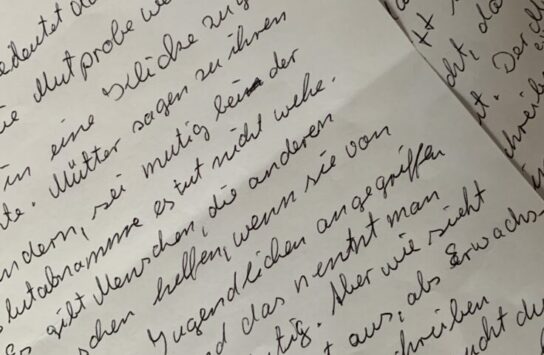 bedeutet da
Mutprobe we
in eine Klicke zu g
te. Mütter sagen zu ihren
ndern, sei mutig beim der
lutabnamme es tut nicht wehe.
s gibt Menschen, die anderen
schen helfen, wenn sie von
Jugendlichen angegriffen
d das nennt man
tig. Aber wie sieht
t aus, als Erwachs-
schreiben
ucht du
ht, da
t. Der
hreib